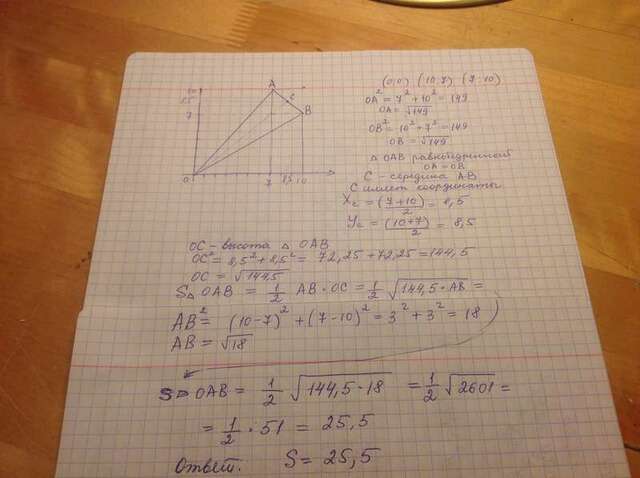 (0,0) (10,7) (7;10)
A
10
8,5
c
7
B
0
7
8,5
10
OA² = 7² + 10² = 149
OA = √149
OB² = 10² + 7² = 149
OB = √149
△ OAB равнобедренный
OA = OB
C - середина AB
C имеет координаты
Xc = (7+10)/2 = 8,5
Yc = (10+7)/2 = 8,5
OC - высота △ OAB
OC² = 8,5² + 8,5² = 72,25 + 72,25 = 144,5
OC = √144,5
S△ OAB = 1/2 AB · OC = 1/2 √144,5 · AB =
AB² = (10-7)² + (7-10)² = 3² + 3² = 18
AB = √18
S△ OAB = 1/2 √144,5 · 18 = 1/2 √2601 =
= 1/2 · 51 = 25,5
Ответ. S = 25,5